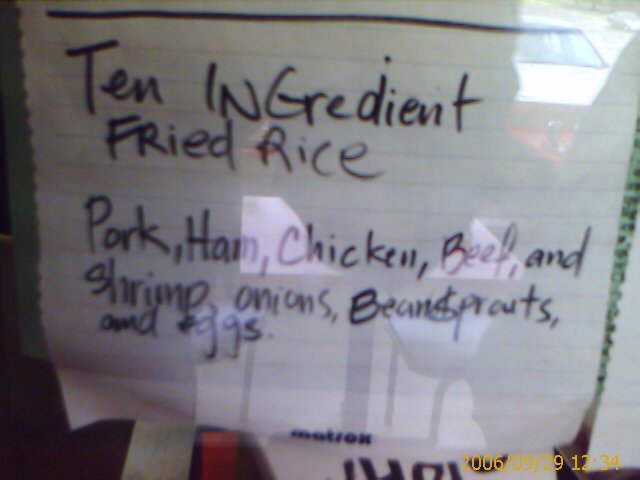 Ten INGredient
FRied Rice
Pork, Ham, Chicken, Beef, and
Shrimp, onions, BeanSprouts,
and eggs.
matrox
2006/09/29 12:34